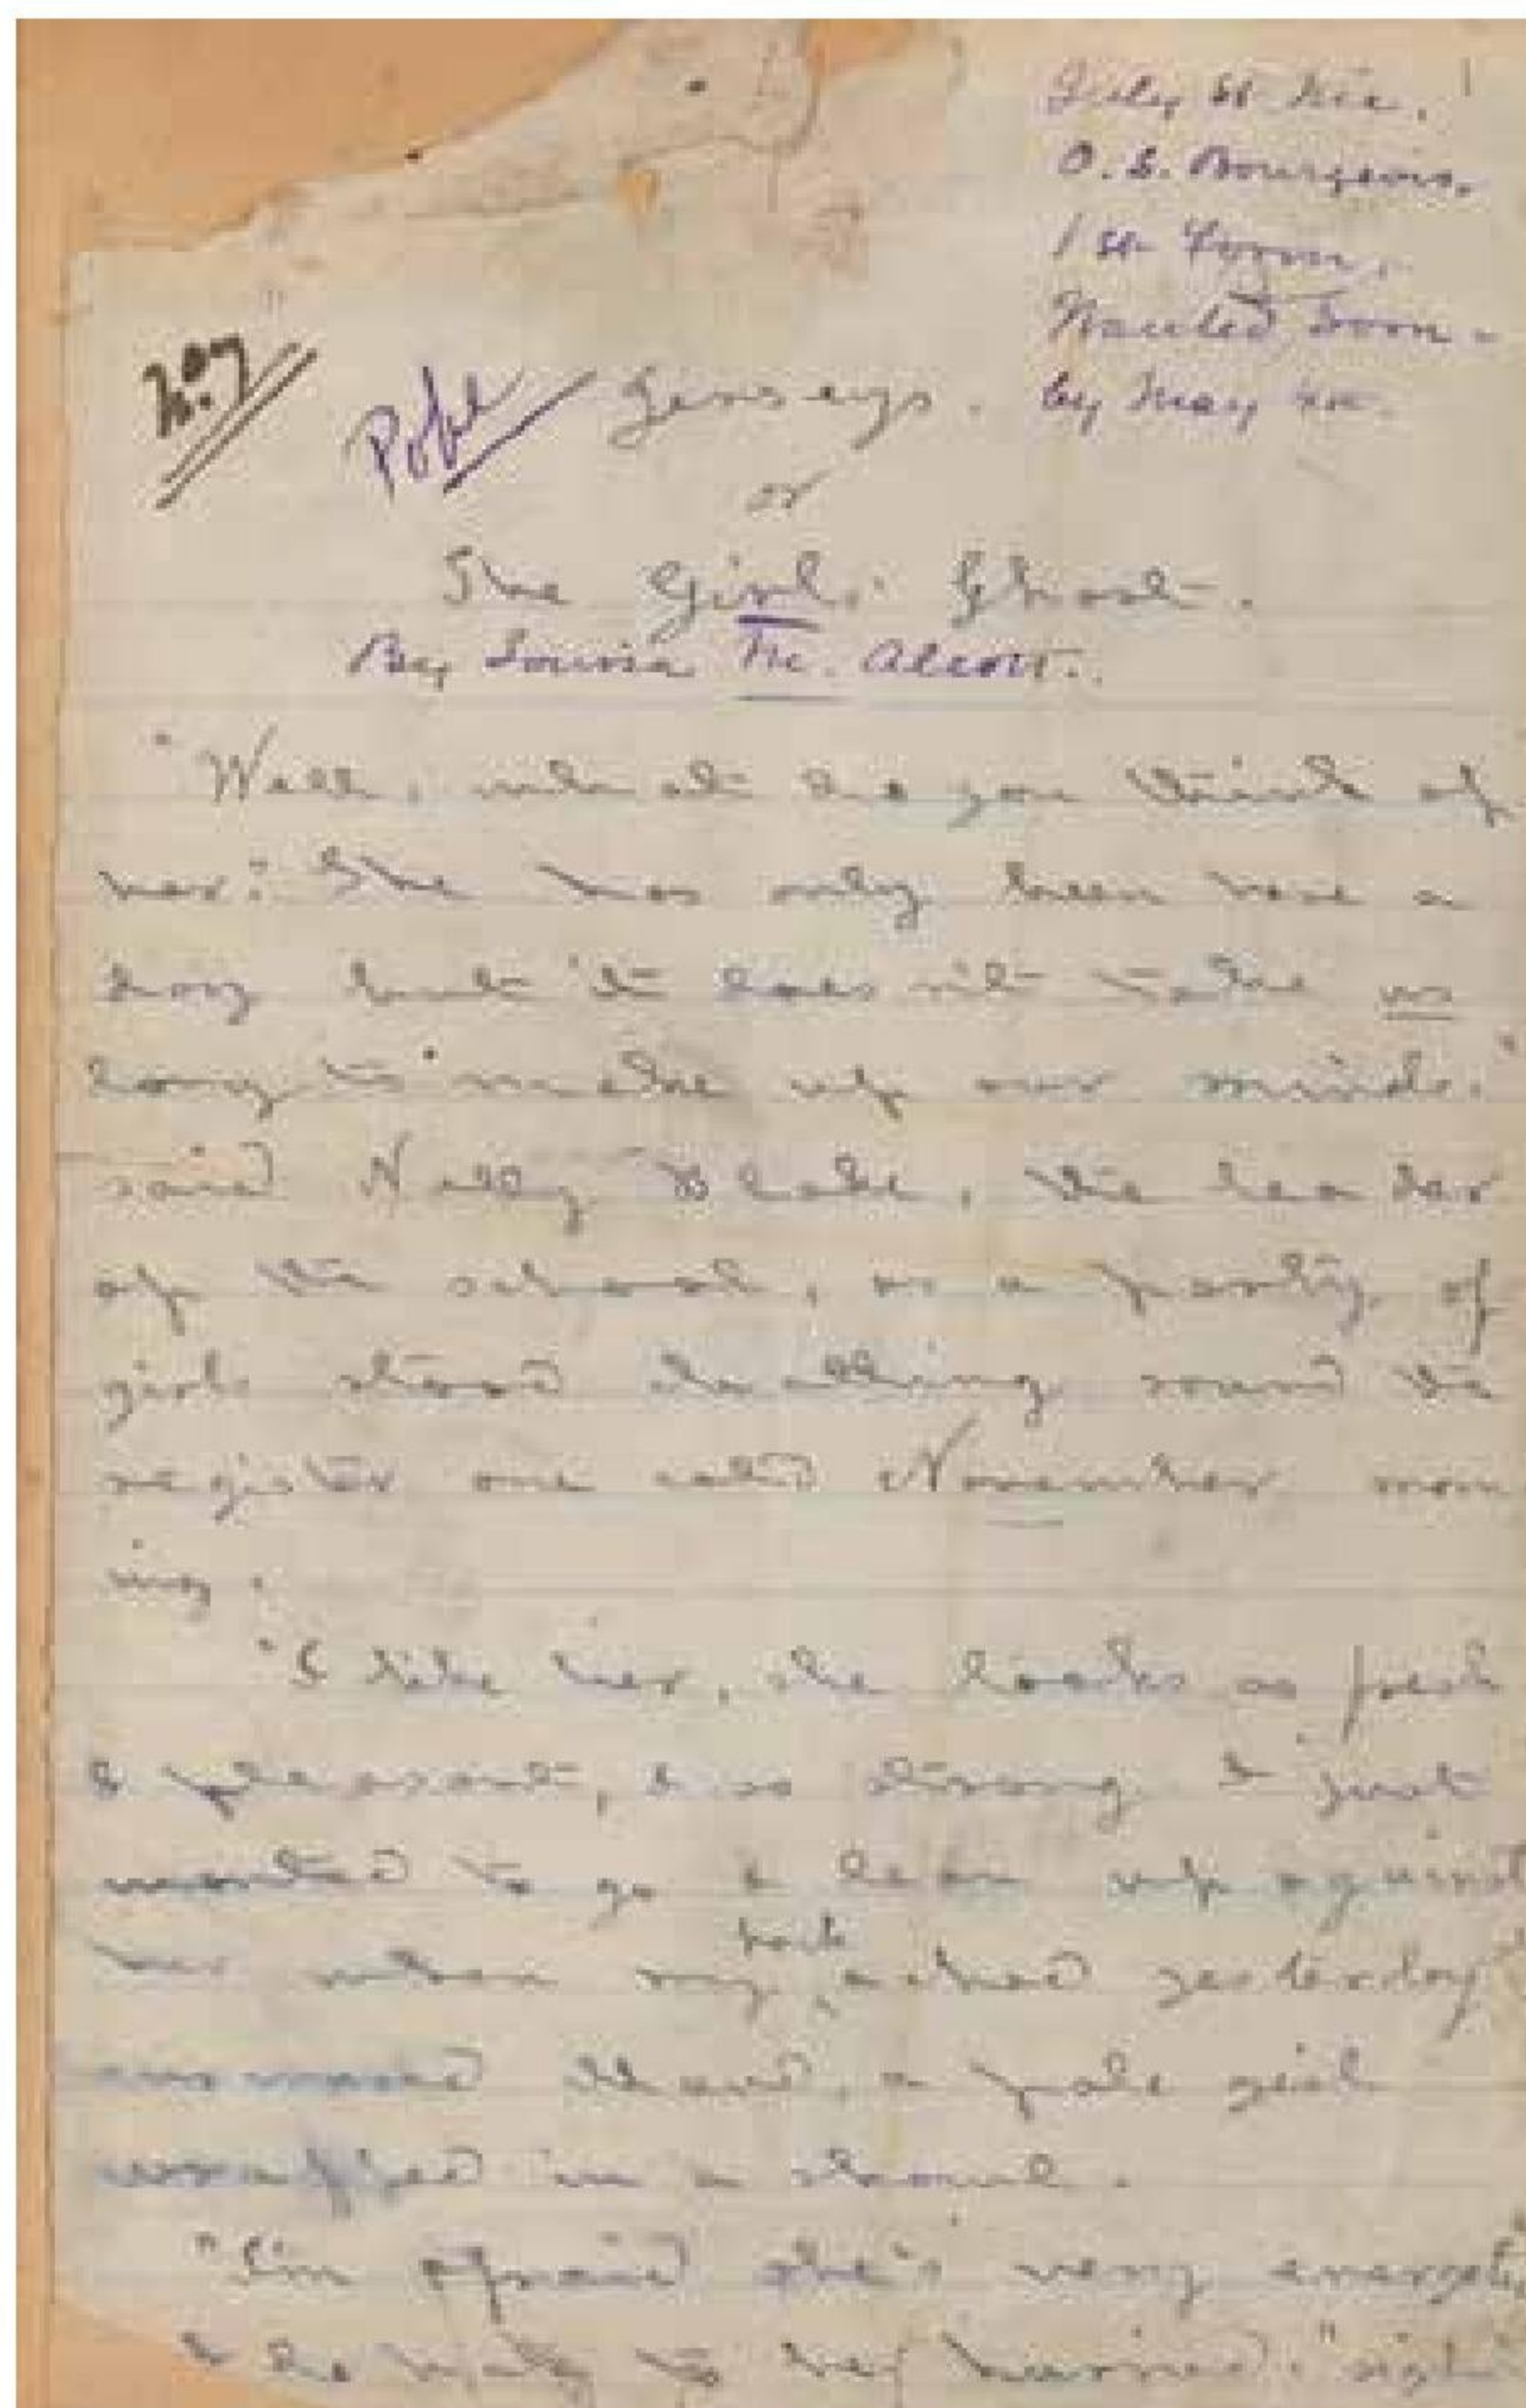 July St. Nic.
O. S. Bourgeois.
1st Form.
Wanted soon -
by May
Jerseys.
or
The Girls' Ghost.
By Louisa M. Alcott.
"Well, what do you think of
her? She has only been here a
day but it does n't take us
long to make up our minds."
said Nelly Blake, the leader
of the school, as a party of
girls stood chatting round the
register one cold November morn
ing.
"I like her, she looks so fresh
& pleasant, & so strong. I just
wanted to go & lean up against
her when my back ached yesterday"
answered Maud, a pale girl
wrapped in a shawl.
"I'm afraid she's very energetic
& I do hate to be hurried," sigh